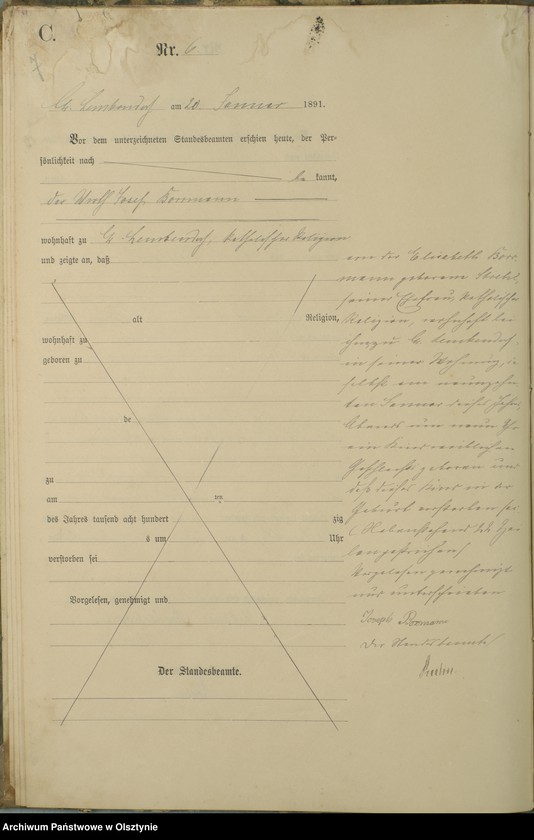 C.
Nr. 6
Gr. Lemkendorf am 20 Januar 1891.
Vor dem unterzeichneten Standesbeamten erschien heute, der Per-
sönlichkeit nach
be kannt,
der Wirth Josef Bormann
wohnhaft zu Gr Lemkendorf, katholischer Religion
und zeigte an, daß
alt Religion,
wohnhaft zu
geboren zu
de
zu
am ten
des Jahres tausend acht hundert zig
s um Uhr
verstorben sei
Vorgelesen, genehmigt und
Der Standesbeamte.
von der Elisabeth Bor-
mann geborene
seiner Ehefrau, katholischer
Religion, wohnhaft bei
ihm zu Gr. Lemkendorf
in seiner Wohnung, da-
selbst am neunzehn-
ten Januar dieses Jahres
Abends um neun Uhr
ein Kind weiblichen
Geschlechts geboren und
daß dieses Kind in der
Geburt verstorben sei
Vorgelesen genehmigt
und unterschrieben
Joseph Bormann
Der Standesbeamte
Archiwum Państwowe w Olsztynie